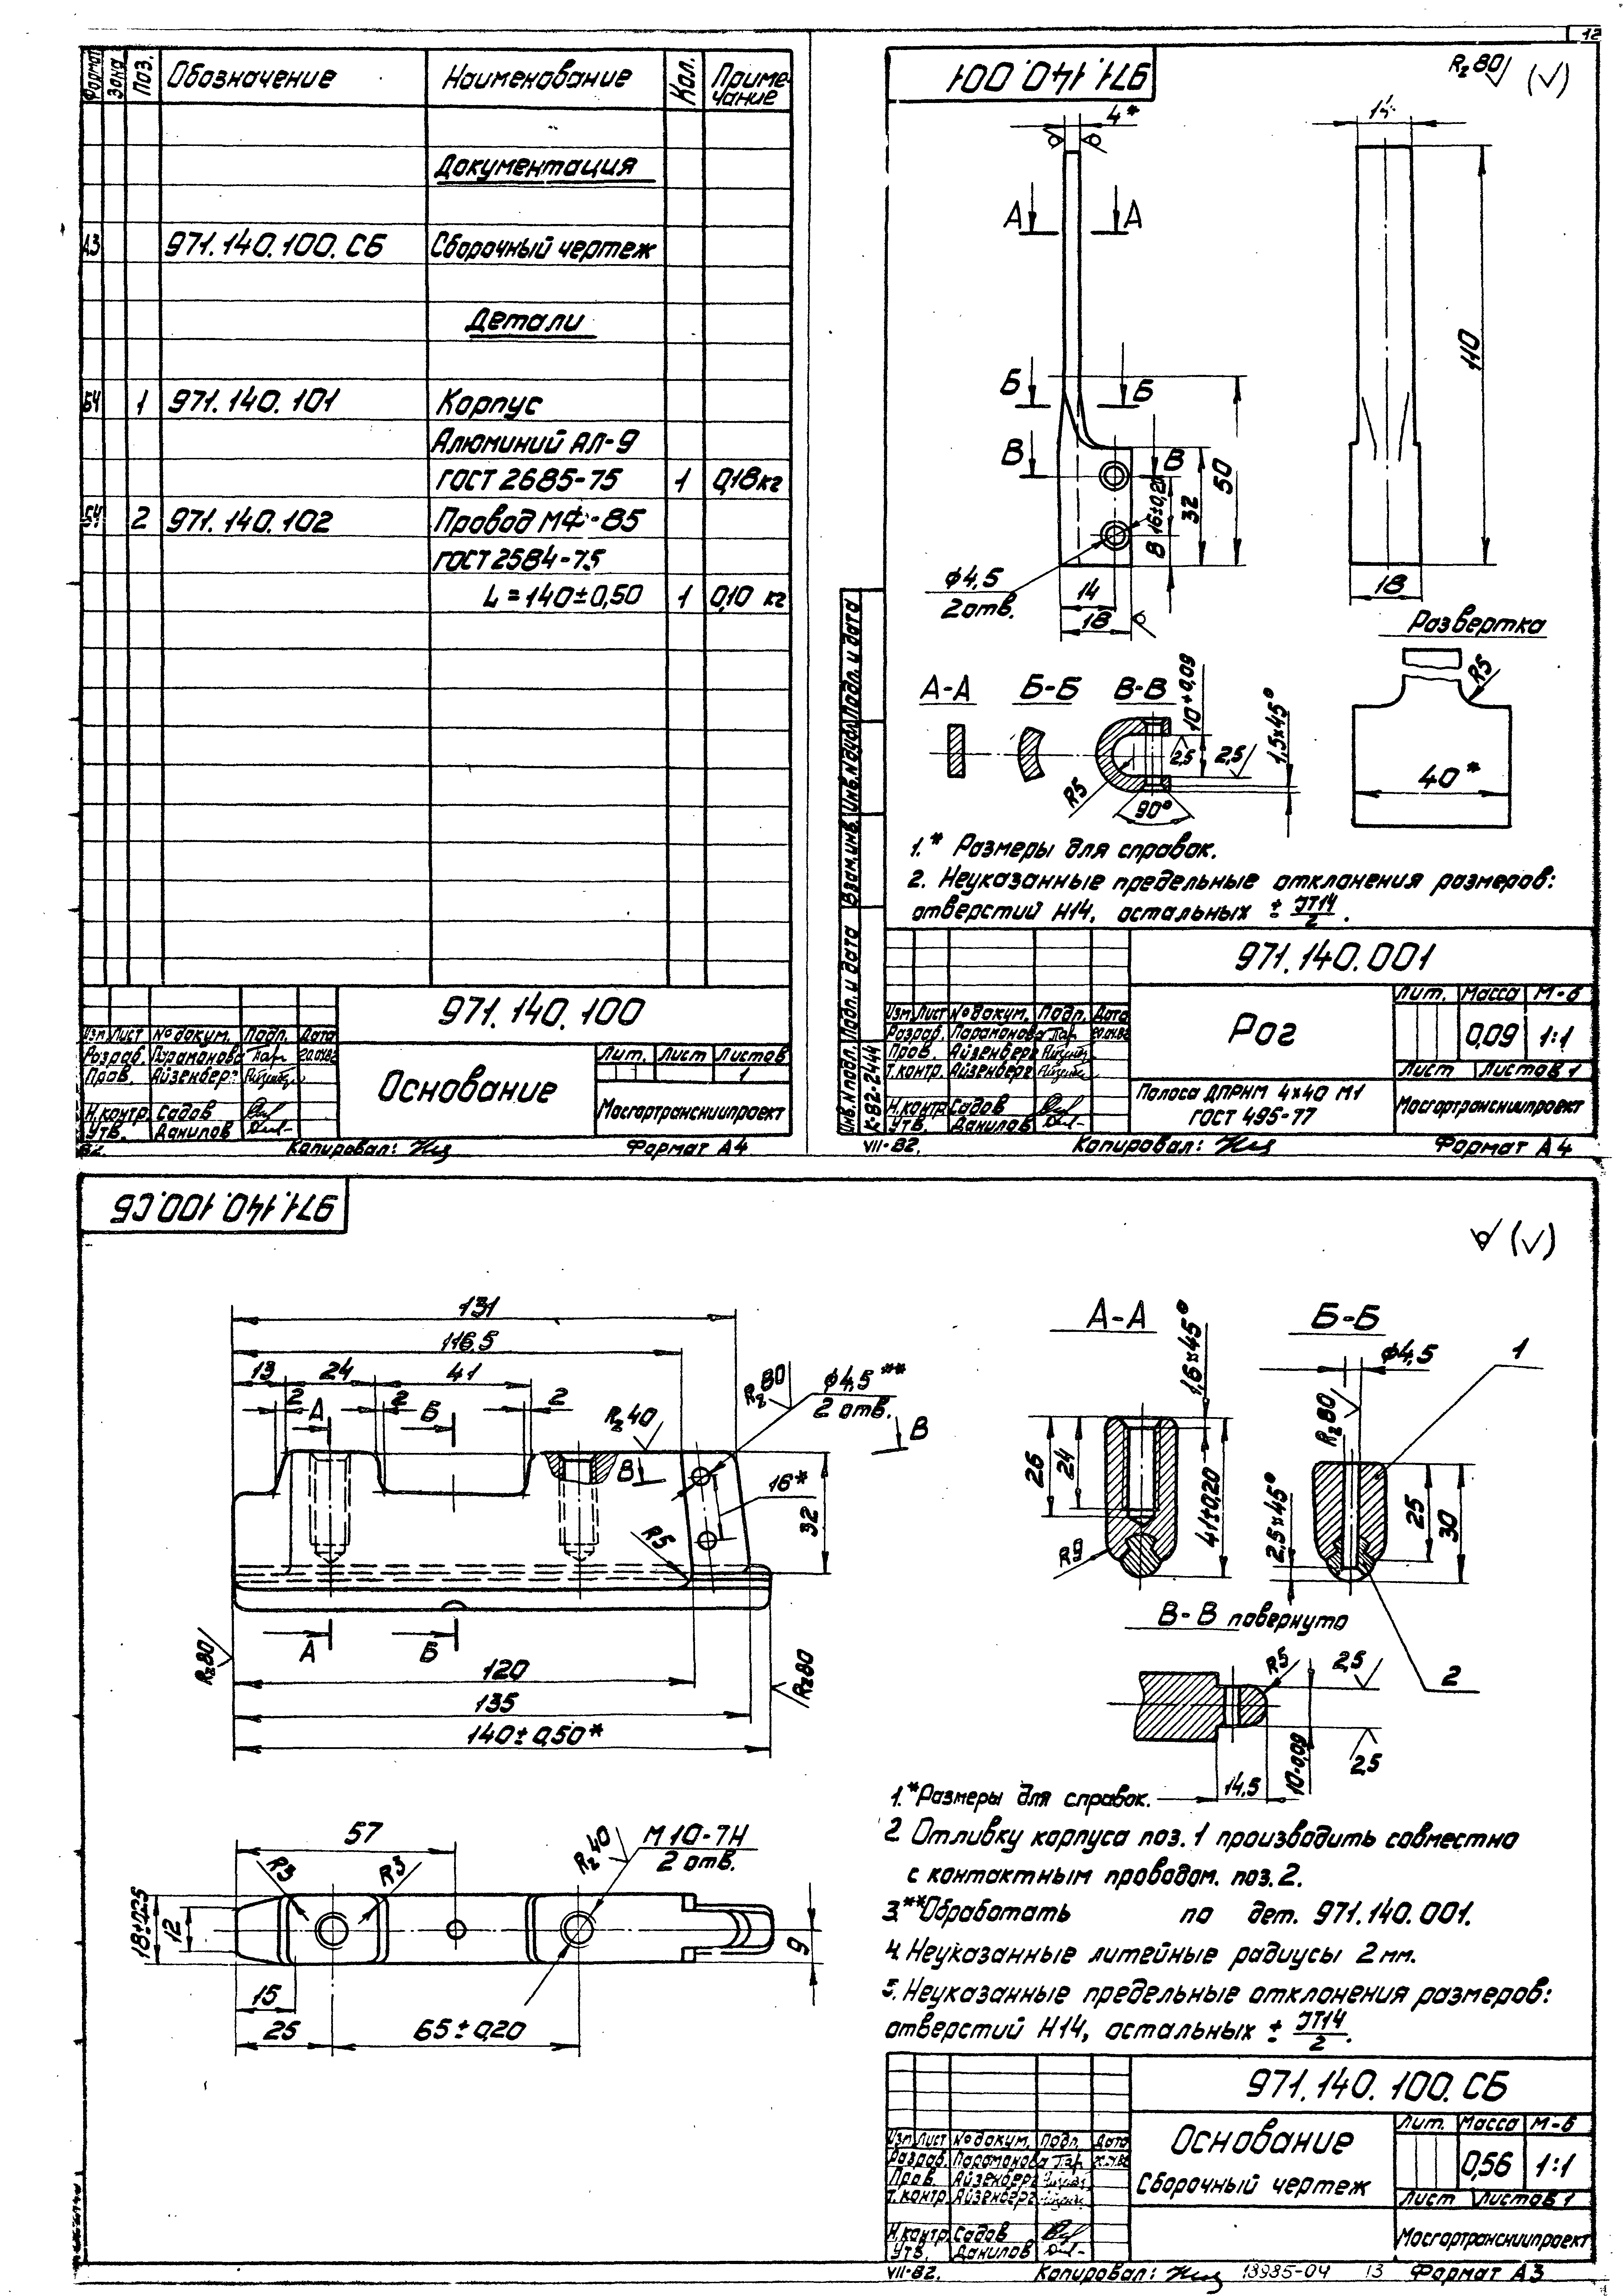 12
Формат Зона Поз. Обозначение Наименование Кол. Приме-
чание
Документация
А3 971.140.100.СБ Сборочный чертеж
Детали
БЧ 1 971.140.101 Корпус
Алюминий АЛ-9
ГОСТ 2685-75 1 0,18кг
БЧ 2 971.140.102 Провод МФ-85
ГОСТ 2584-75
L=140±0,50 1 0,10 кг
971.140.100
Изм Лист № докум. Подп. Дата
Разраб. Парамонова 20.01.82
Пров. Айзенберг
Н.контр. Садов
Утв. Данилов
Основание
Лит. Лист Листов
1
Мосгортрансниипроект
82. Копировал: Формат А4
971.140.001
Rz80 (√)
4*
14
А А
110
Б Б
В В
50
32
16±0,20
8
ϕ4,5
2 отв.
14
18
18
Развертка
А-А Б-Б В-В
10+0,09
2,5
2,5
1,5×45°
R5
90°
R5
40*
1.* Размеры для справок.
2. Неуказанные предельные отклонения размеров:
отверстий H14, остальных ± JT14/2.
Инв.№подл. Подп. и дата Взам.инв. Инв.№дубл. Подп. и дата
К-82-2444
971.140.001
Изм Лист № докум. Подп. Дата
Разраб. Парамонова 20.01.82
Пров. Айзенберг
Т.контр. Айзенберг
Н.контр. Садов
Утв. Данилов
Рог
Лит. Масса М-б
0,09 1:1
Лист Листов 1
Полоса ДПРНМ 4×40 М1
ГОСТ 495-77
Мосгортрансниипроект
VII-82. Копировал: Формат А4
971.140.100.СБ
(√)
131
116,5
13 24 41
2 2 2
А Б
Rz40
Rz80
ϕ4,5**
2 отв.
В
В
16*
32
R5
А Б
Rz80
Rz80
120
135
140±0,50*
А-А
1,6×45°
26
24
41±0,20
R9
Б-Б
ϕ4,5
1
Rz80
2,5×45°
25
30
2
В-В повернуто
R5
2,5
2,5
14,5
10-0,09
57
R3
R3
Rz40
М10-7Н
2 отв.
18±0,25
12
9
15
25
65±0,20
1.*Размеры для справок.
2. Отливку корпуса поз.1 производить совместно
с контактным проводом. поз.2.
3.**Обработать по дет. 971.140.001.
4. Неуказанные литейные радиусы 2 мм.
5. Неуказанные предельные отклонения размеров:
отверстий H14, остальных ± JT14/2.
971.140.100.СБ
Изм Лист № докум. Подп. Дата
Разраб. Парамонова
Пров. Айзенберг
Т.контр. Айзенберг
Н.контр. Садов
Утв. Данилов
Основание
Сборочный чертеж
Лит. Масса М-б
0,56 1:1
Лист Листов 1
Мосгортрансниипроект
VII-82. Копировал: 13985-04 13 Формат А3